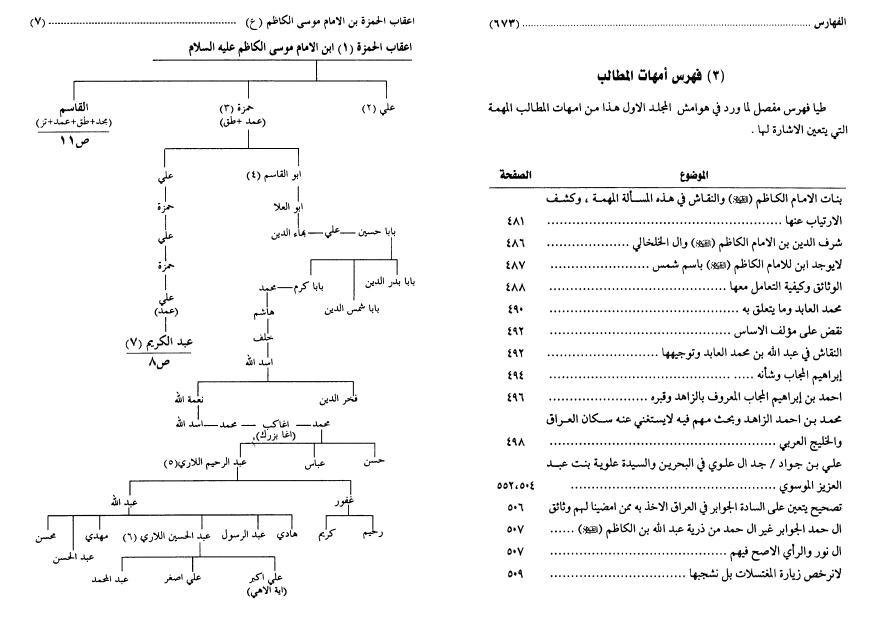 الفهارس ........................ (٦٧٣)
(٣) فهرس أمهات المطالب
طيا فهرس مفصل لما ورد في هوامش المجلد الاول هذا من امهات المطالب المهمة
التي يتعين الاشارة لها .
الموضوع الصفحة
بنات الامام الكاظم (عليه السلام) والنقاش في هذه المسألة المهمة ، وكشف
الارتياب عنها ........................ ٤٨١
شرف الدين بن الامام الكاظم (عليه السلام) وال الخلخالي ........................ ٤٨٦
لايوجد ابن للامام الكاظم (عليه السلام) باسم شمس ........................ ٤٨٧
الوثائق وكيفية التعامل معها ........................ ٤٨٨
محمد العابد وما يتعلق به ........................ ٤٩٠
نقض على مؤلف الاساس ........................ ٤٩٢
النقاش في عبد الله بن محمد العابد وتوجيهها ........................ ٤٩٢
إبراهيم المجاب وشأنه ........................ ٤٩٤
احمد بن إبراهيم المجاب المعروف بالزاهد وقبره ........................ ٤٩٦
محمد بن احمد الزاهد وبحث مهم فيه لايستغني عنه سكان العراق
والخليج العربي ........................ ٤٩٨
علي بن جواد / جد ال علوي في البحرين والسيدة علوية بنت عبد
العزيز الموسوي ........................ ٥٥٢،٥٠٤
تصحيح يتعين على السادة الجوابر في العراق الاخذ به ممن امضينا لهم وثائق ٥٠٦
ال حمد الجوابر غير ال حمد من ذرية عبد الله بن الكاظم (عليه السلام) ...... ٥٠٧
ال نور والرأي الاصح فيهم ........................ ٥٠٧
لانرخص زيارة المغتسلات بل نشجبها ........................ ٥٠٩
اعقاب الحمزة بن الامام موسى الكاظم (ع) ........................ (٧)
اعقاب الحمزة (١) ابن الامام موسى الكاظم عليه السلام
علي (٢) حمزة (٣) القاسم
(عمد +طق) (بحد+طق+عمد+تر)
ص١١
ابو القاسم (٤) علي
ابو العلا حمزة
بابا حسين علي بهاء الدين علي
حمزة
بابا بدر الدين بابا كرم محمد
علي
بابا شمس الدين هاشم (عمد)
خلف
عبد الكريم (٧)
اسد الله ص٨
فخر الدين نعمة الله
محمد اغاكب محمد اسد الله
(اغا بزرك)
حسن عباس عبد الرحيم اللاري (٥)
غفور عبد الله
رحيم كريم هادي عبد الرسول عبد الحسين اللاري (٦) مهدي محسن
عبد الحسن
علي اكبر علي اصغر عبد المحمد
(اية الاهي)